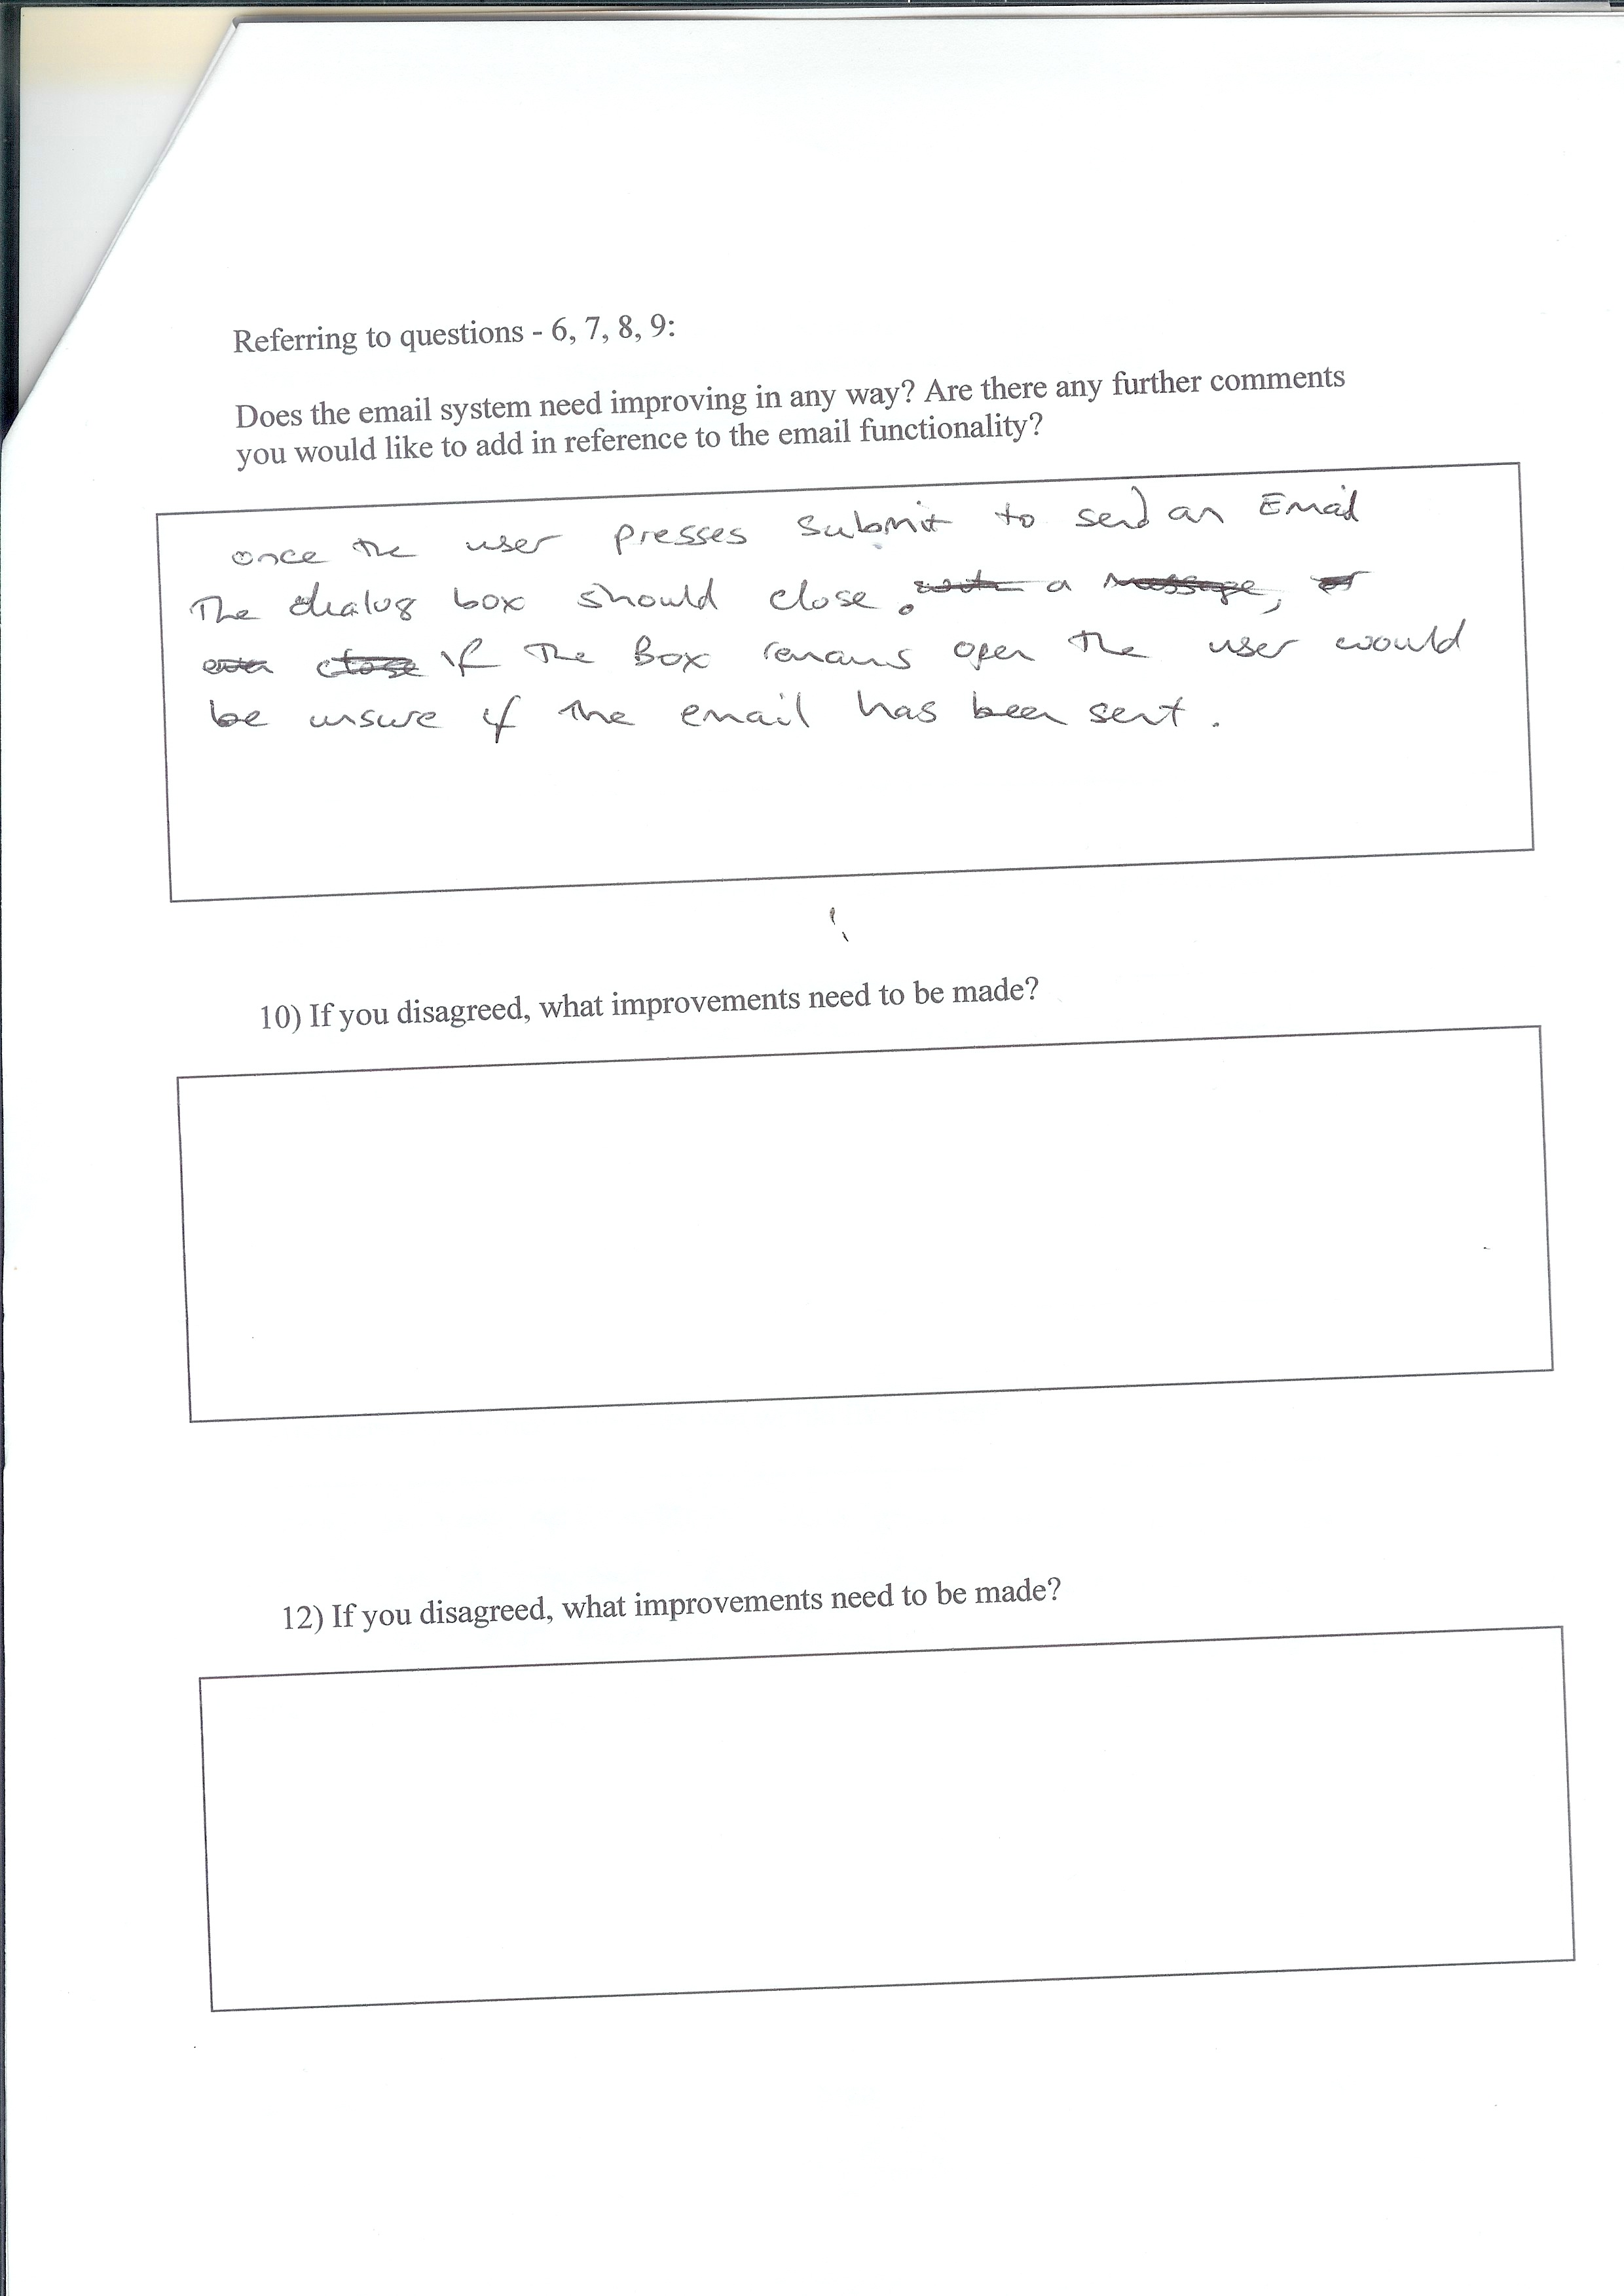 Referring to questions - 6, 7, 8, 9:
Does the email system need improving in any way? Are there any further comments
you would like to add in reference to the email functionality?
once the user presses submit to send an Email
The dialog box should close. with a message, or
close if The Box remains open The user would
be unsure if the email has been sent.
10) If you disagreed, what improvements need to be made?
12) If you disagreed, what improvements need to be made?